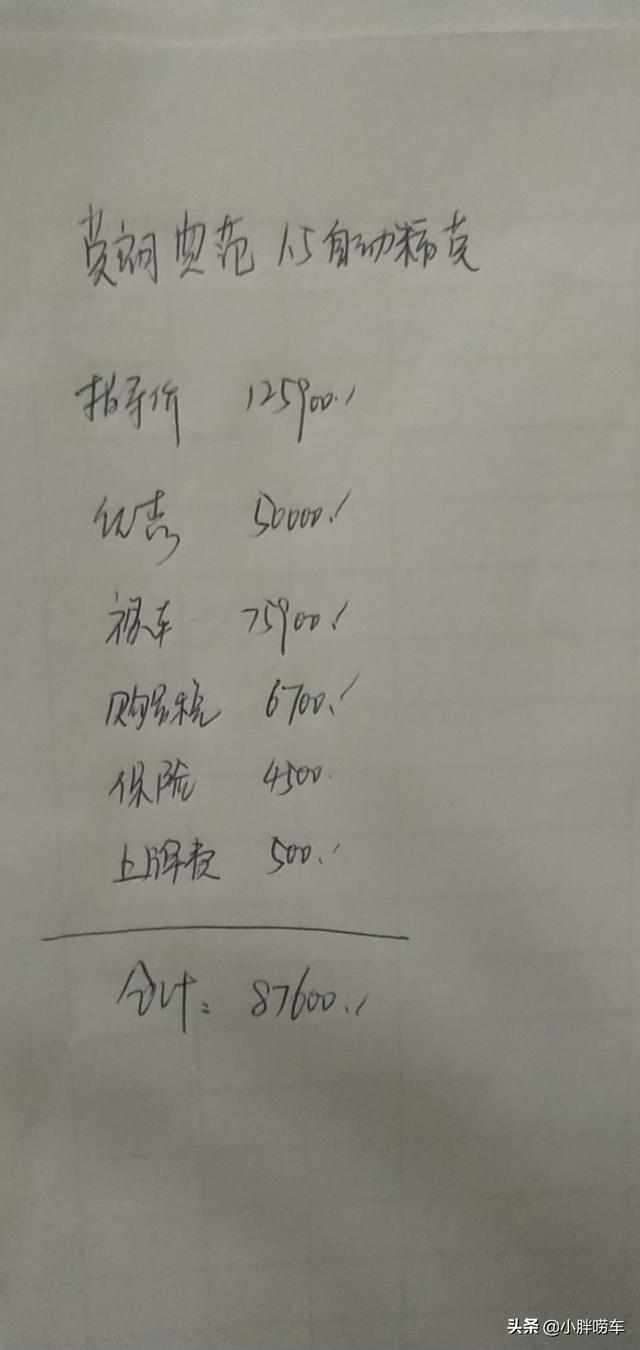 英朗典范 1.5自动精英
指导价 125900.
优惠 50000.
裸车 75900.
购置税 6700.
保险 4500.
上牌费 500.
合计: 87600.
头条 @小胖唠车